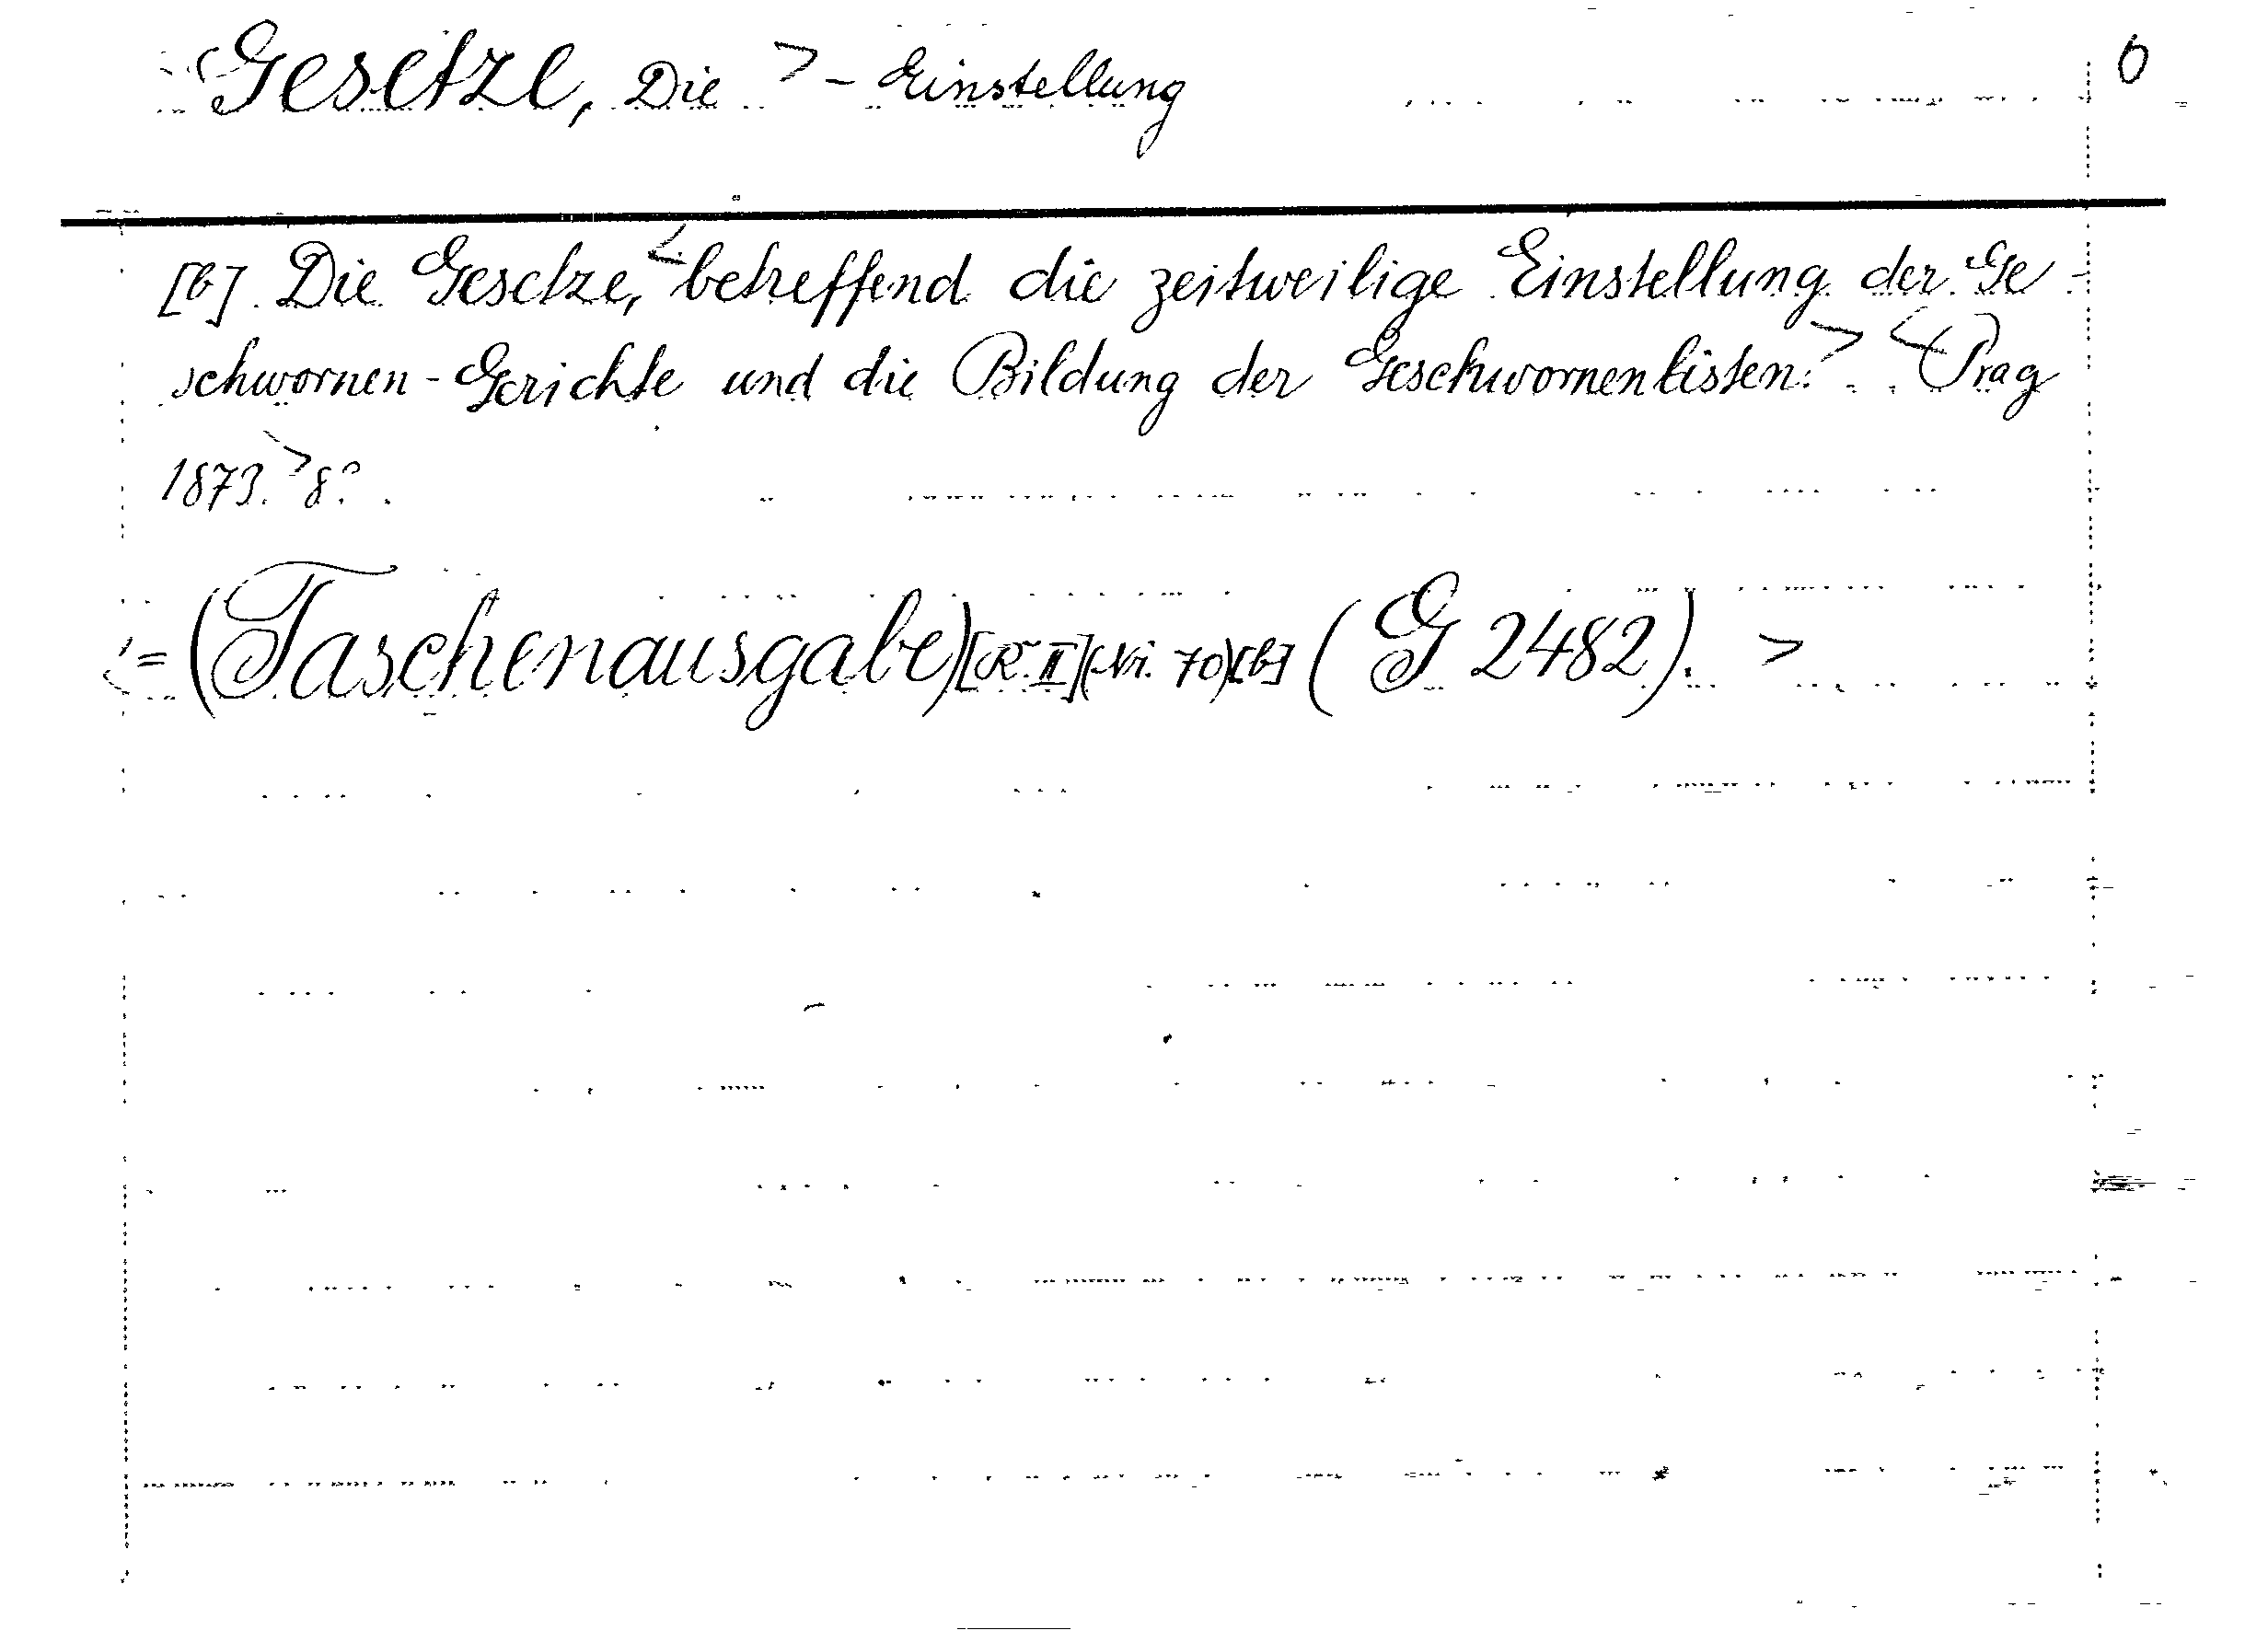 <Gesetze, Die > - Einstellung 0
[b]. Die Gesetze, <betreffend die zeitweilige Einstellung der Ge-
schwornen-Gerichte und die Bildung der Geschwornenlisten.> <Prag
1873.> 8°.
<= (Taschenausgabe)[R. II](Nr. 70)[b] (G 2482). >